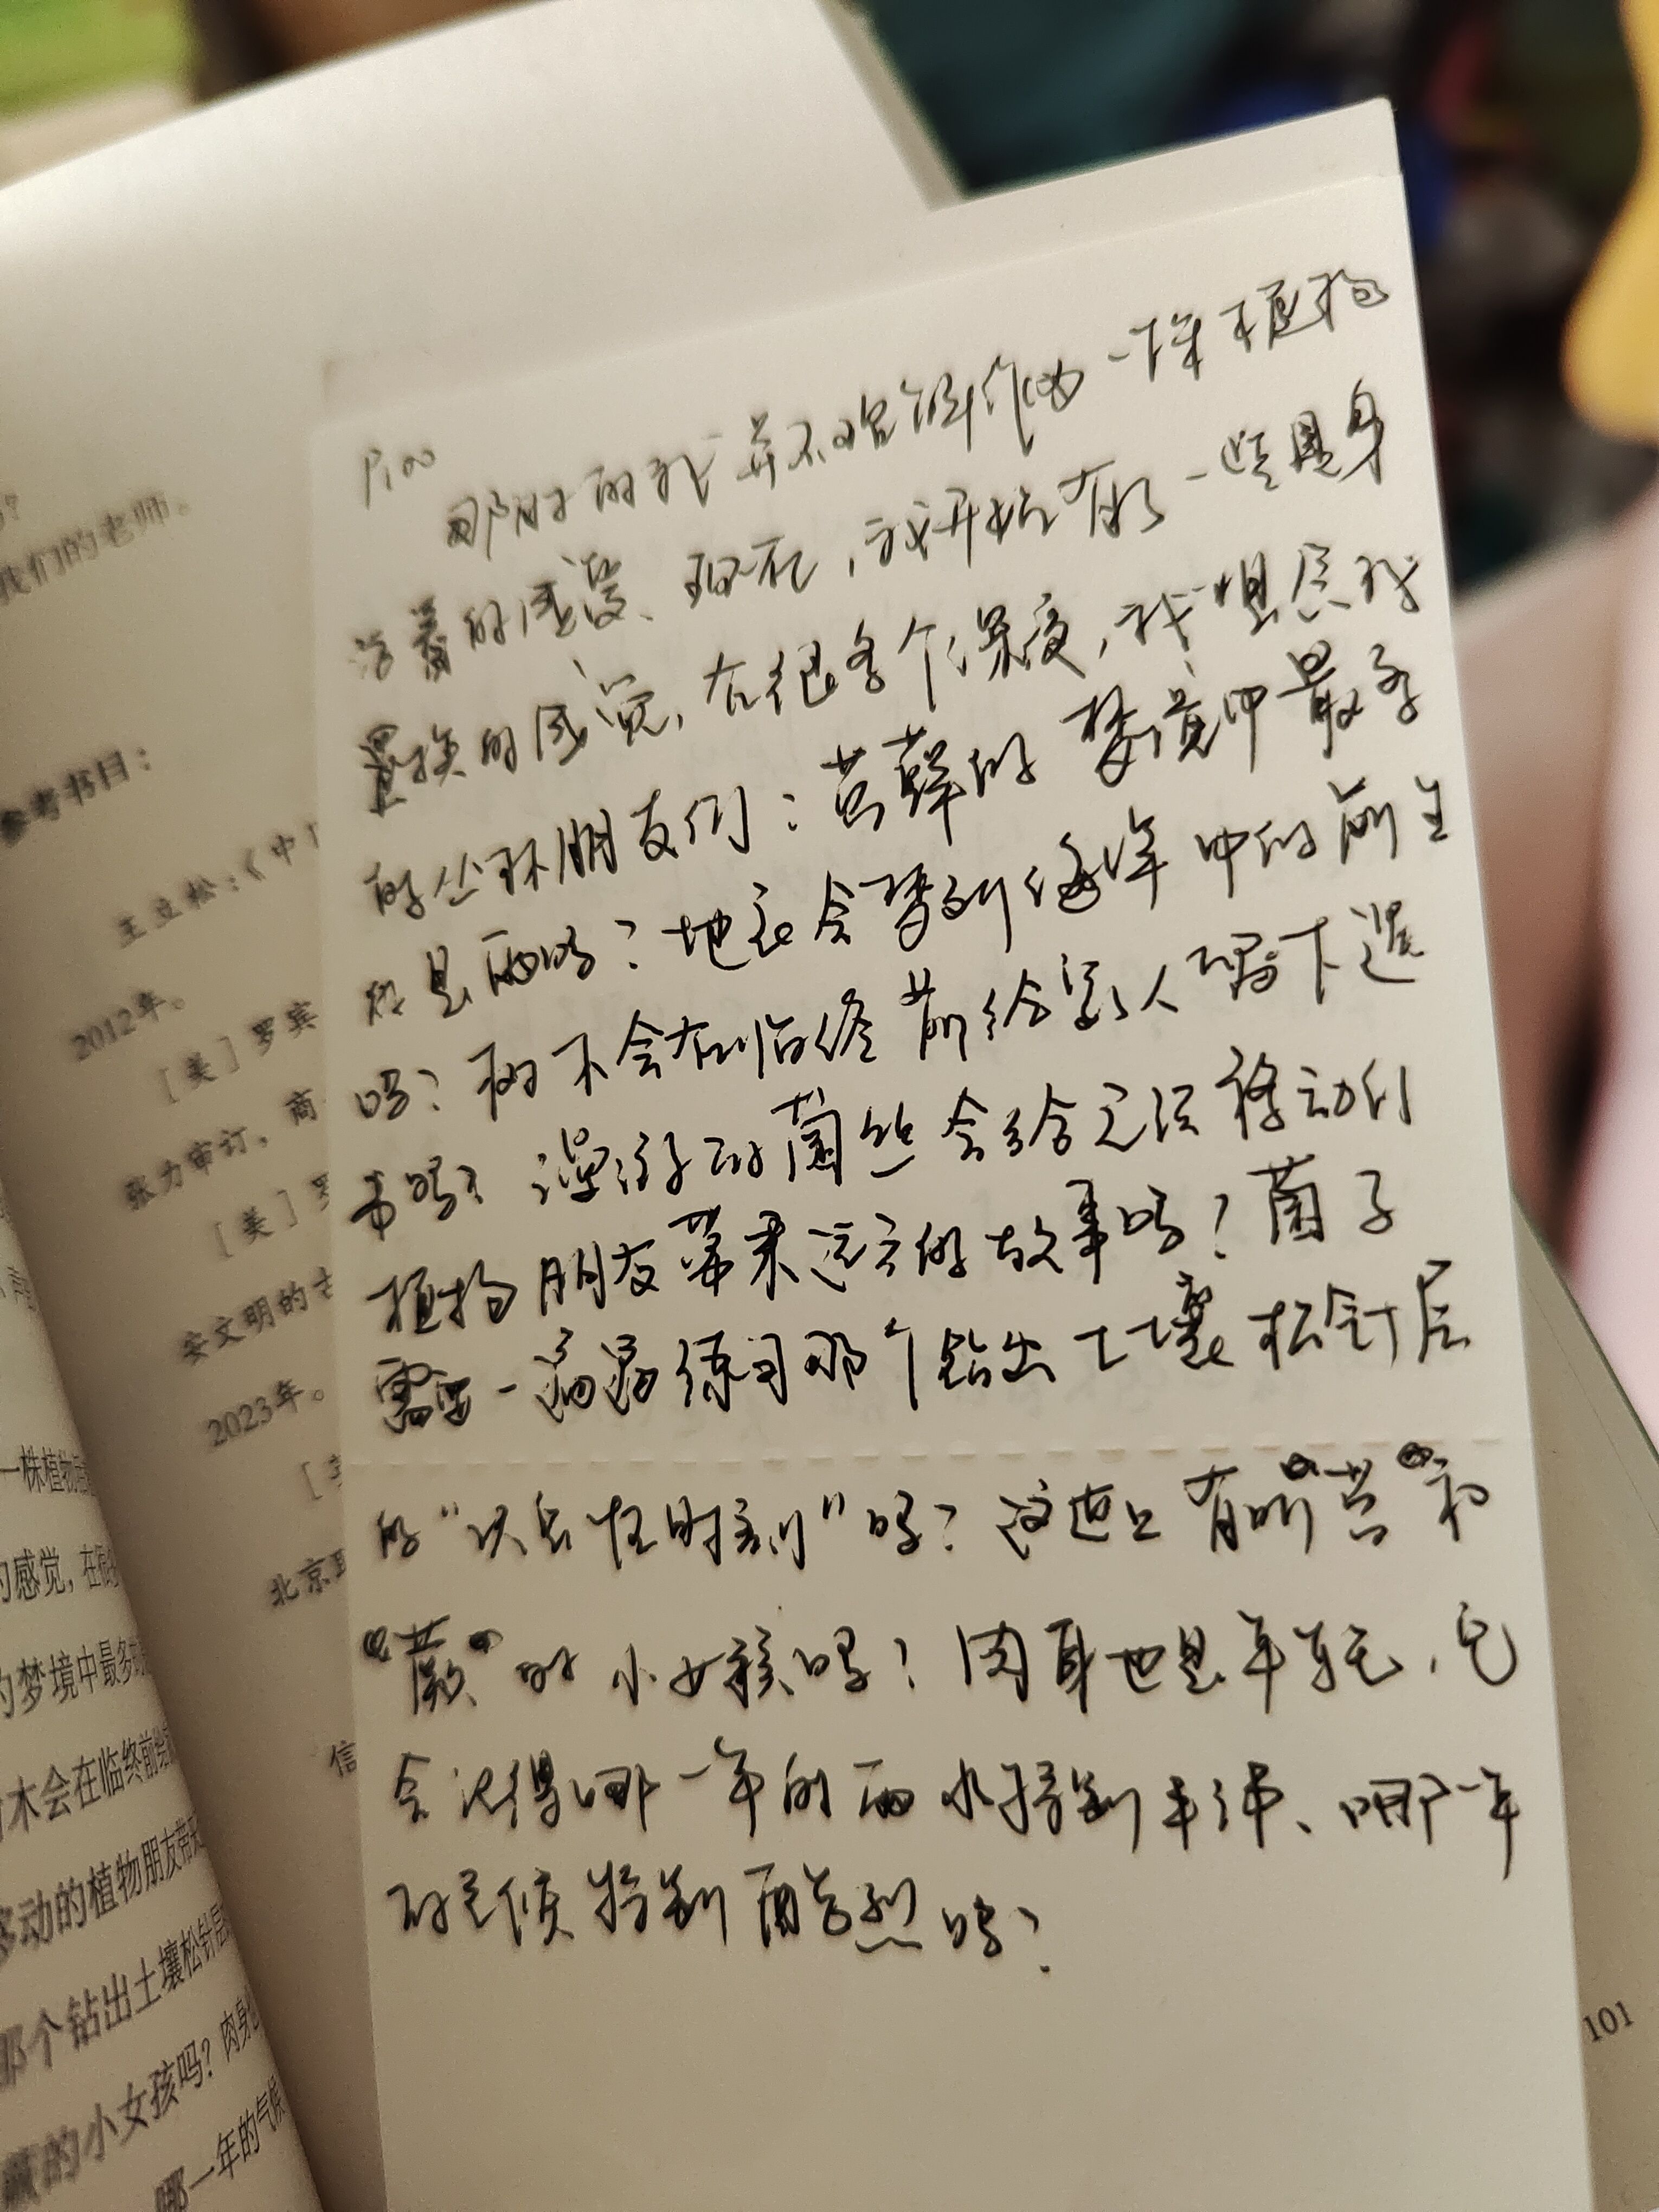 我们的老师。
参考书目：
王立松：《中
2012年。
［美］罗宾
张力审订，商
［美］罗
安文明的古
2023年。
北京联
信
一株植物
的感觉，在很
的梦境中最多
木会在临终前给
移动的植物朋友带来
那个钻出土壤松针层
蕨的小女孩吗？肉身也
哪一年的气候
P100
那时的我并不能解作为一株植物
活着的感受、现在，我开始有了一些具身
置换的感觉，在很多个深夜，我想念我
的丛林朋友们：苔藓的梦境中最多
的是雨吗？地衣会梦到海洋中的前生
吗？树木会在临终前给家人留下遗
书吗？漫游的菌丝会给无法移动的
植物朋友带来远方的故事吗？菌子
需要一遍遍练习那个钻出土壤松针层
的“决定性时刻”吗？这世上有叫“苔”和
“蕨”的小女孩吗？肉身也是年轮，它
会记得哪一年的雨水特别丰沛、哪一年
的气候特别酷烈吗？
101